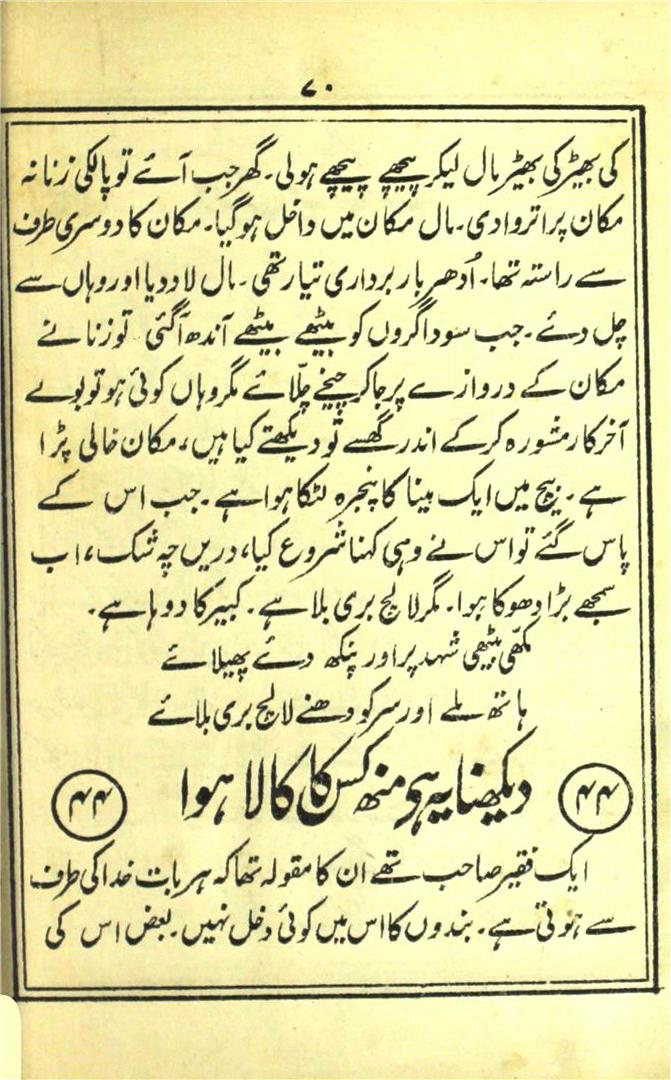 ۷۰
کی بھیڑ کی بھیڑ مال لیکر پیچھے پیچھے ہولی۔ گھر جب آئے تو پالکی زنانہ
مکان پر اتروا دی۔ مال مکان میں داخل ہوگیا۔ مکان کا دوسری طرف
سے راستہ تھا۔ اُدھر بار برداری تیار تھی۔ مال لاد دیا اور وہاں سے
چل دئے۔ جب سوداگروں کو بیٹھے بیٹھے آندھ آگئی تو زنانے
مکان کے دروازے پر جاکر چیخے چلّائے مگر وہاں کوئی ہو تو بولے
آخرکار مشورہ کرکے اندر گھسے تو دیکھتے کیا ہیں، مکان خالی پڑا
ہے۔ بیچ میں ایک مینا کا پنجرہ لٹکا ہوا ہے۔ جب اس کے
پاس گئے تو اس نے وہی کہنا شروع کیا، دریں چہ شک، اب
سمجھے بڑا دھوکا ہوا۔ مگر لالچ بری بلا ہے۔ کبیر کا دوہا ہے۔
مکھّی بیٹھی شہد پر اور پنکھ دئے پھیلائے
ہاتھ ملے اور سر کو دھنے لالچ بری بلائے
۴۴ دیکھنا یہ ہو منھ کس کا کالا ہوا ۴۴
ایک فقیر صاحب تھے ان کا مقولہ تھا کہ ہر بات خدا کی طرف
سے ہوتی ہے۔ بندوں کا اس میں کوئی دخل نہیں۔ بعض اس کی